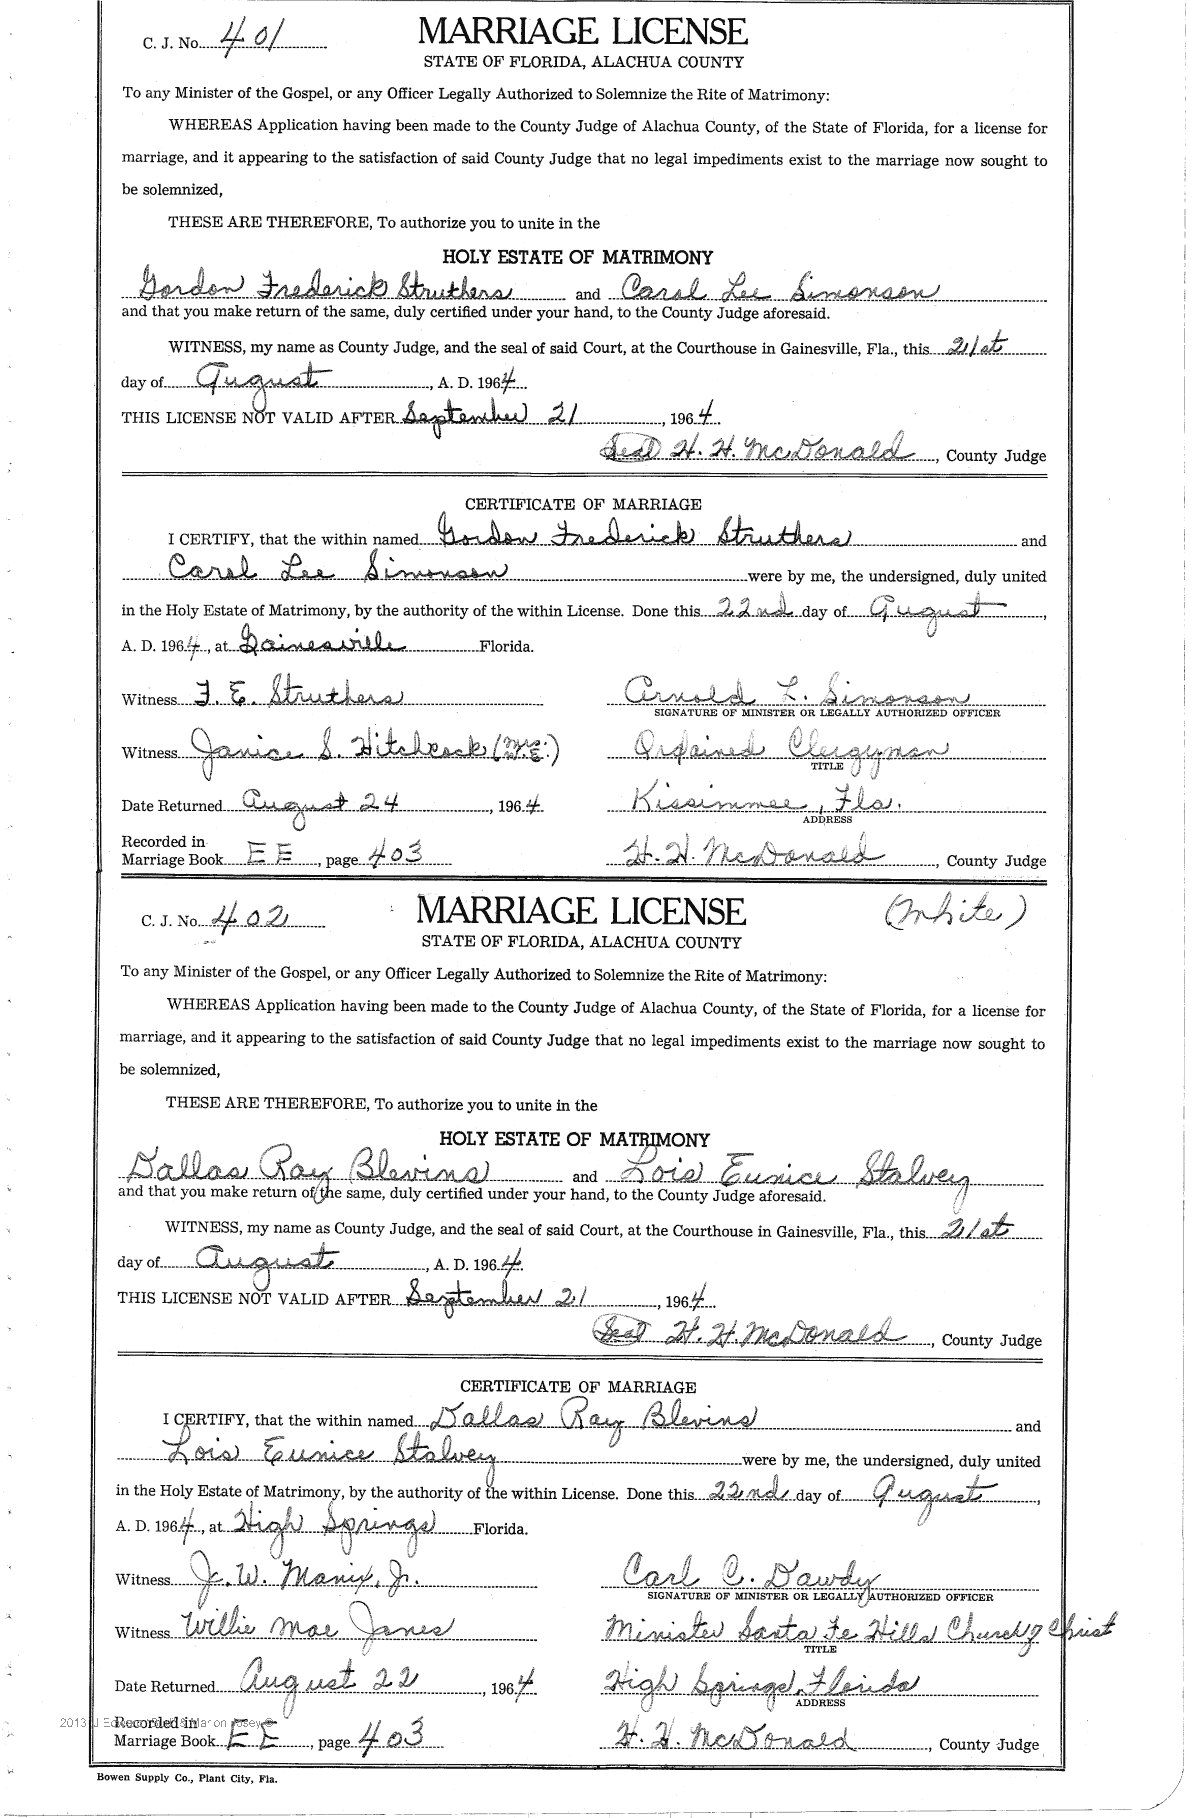 C. J. No. 401
MARRIAGE LICENSE
STATE OF FLORIDA, ALACHUA COUNTY
To any Minister of the Gospel, or any Officer Legally Authorized to Solemnize the Rite of Matrimony:
WHEREAS Application having been made to the County Judge of Alachua County, of the State of Florida, for a license for
marriage, and it appearing to the satisfaction of said County Judge that no legal impediments exist to the marriage now sought to
be solemnized,
THESE ARE THEREFORE, To authorize you to unite in the
HOLY ESTATE OF MATRIMONY
Gordon Frederick Struthers and Carol Lee Simonson
and that you make return of the same, duly certified under your hand, to the County Judge aforesaid.
WITNESS, my name as County Judge, and the seal of said Court, at the Courthouse in Gainesville, Fla., this 21st
day of August, A. D. 1964
THIS LICENSE NOT VALID AFTER September 21, 1964
Seal H. H. McDonald, County Judge
CERTIFICATE OF MARRIAGE
I CERTIFY, that the within named Gordon Frederick Struthers and
Carol Lee Simonson were by me, the undersigned, duly united
in the Holy Estate of Matrimony, by the authority of the within License. Done this 22nd day of August,
A. D. 1964, at Gainesville Florida.
Witness F. E. Struthers Arnold L. Simonson
SIGNATURE OF MINISTER OR LEGALLY AUTHORIZED OFFICER
Witness Janice S. Hitchcock (Mrs. W.E.) Ordained Clergyman
TITLE
Date Returned August 24, 1964 Kissimmee, Fla.
ADDRESS
Recorded in
Marriage Book EE, page 403 H. H. McDonald, County Judge
C. J. No. 402
MARRIAGE LICENSE (White)
STATE OF FLORIDA, ALACHUA COUNTY
To any Minister of the Gospel, or any Officer Legally Authorized to Solemnize the Rite of Matrimony:
WHEREAS Application having been made to the County Judge of Alachua County, of the State of Florida, for a license for
marriage, and it appearing to the satisfaction of said County Judge that no legal impediments exist to the marriage now sought to
be solemnized,
THESE ARE THEREFORE, To authorize you to unite in the
HOLY ESTATE OF MATRIMONY
Dallas Ray Blevins and Lois Eunice Stalvey
and that you make return of the same, duly certified under your hand, to the County Judge aforesaid.
WITNESS, my name as County Judge, and the seal of said Court, at the Courthouse in Gainesville, Fla., this 21st
day of August, A. D. 1964
THIS LICENSE NOT VALID AFTER September 21, 1964
Seal H. H. McDonald, County Judge
CERTIFICATE OF MARRIAGE
I CERTIFY, that the within named Dallas Ray Blevins and
Lois Eunice Stalvey were by me, the undersigned, duly united
in the Holy Estate of Matrimony, by the authority of the within License. Done this 22nd day of August,
A. D. 1964, at High Springs Florida.
Witness J. W. Manix, Jr. Carl C. Dawdy
SIGNATURE OF MINISTER OR LEGALLY AUTHORIZED OFFICER
Witness Willie Mae Janes Minister Santa Fe Hills Church of Christ
TITLE
Date Returned August 22, 1964 High Springs, Florida
ADDRESS
Recorded in
Marriage Book EE, page 403 H. H. McDonald, County Judge
Bowen Supply Co., Plant City, Fla.